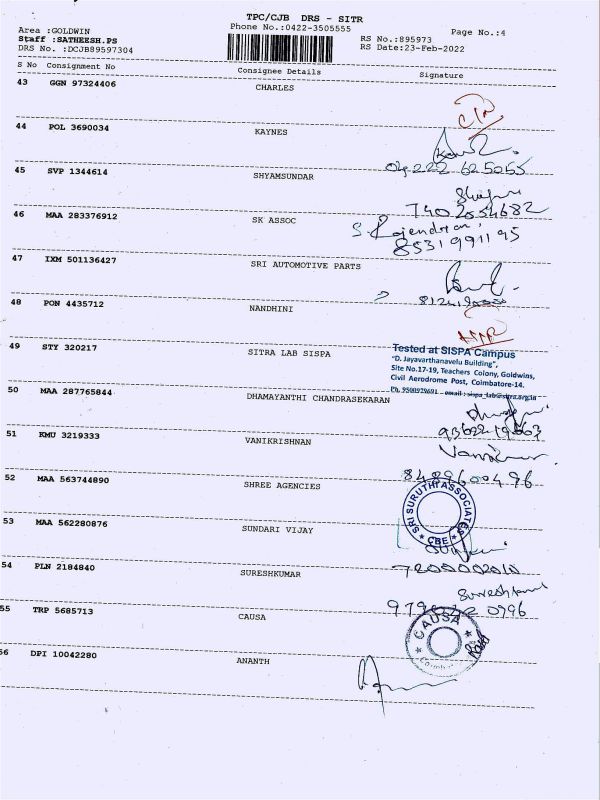 TPC/CJB DRS - SITR
Area :GOLDWIN
Phone No.:0422-3505555
Page No.:4
Staff :SATHEESH.PS
RS No.:895973
DRS No. :DCJB89597304
RS Date:23-Feb-2022
S No Consignment No Consignee Details Signature
43 GGN 97324406 CHARLES
44 POL 3690034 KAYNES
45 SVP 1344614 SHYAMSUNDAR
46 MAA 283376912 SK ASSOC
S. Rajendran
8531991195
47 IXM 501136427 SRI AUTOMOTIVE PARTS
48 PON 4435712 NANDHINI
49 STY 320217 SITRA LAB SISPA
Tested at SISPA Campus
"D. Jayavarthanavelu Building",
Site No.17-19, Teachers Colony, Goldwins,
Civil Aerodrome Post, Coimbatore-14.
Ph. 9500979691 email : sispa_lab@sitra.org.in
50 MAA 287765844 DHAMAYANTHI CHANDRASEKARAN
51 KMU 3219333 VANIKRISHNAN
8489600496
52 MAA 563744890 SHREE AGENCIES
SRI SURUTHI ASSOCIATES
CBE
53 MAA 562280876 SUNDARI VIJAY
54 PLN 2184840 SURESHKUMAR
Sureshkumar
55 TRP 5685713 CAUSA
CAUSA
56 DPI 10042280 ANANTH